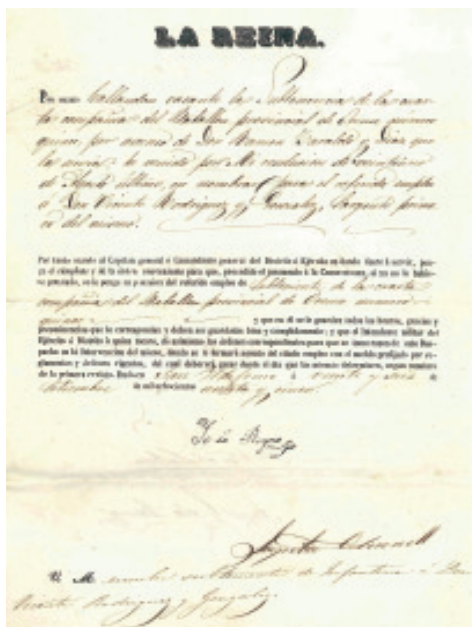 LA REINA.
Por cuanto hallandose vacante la Subtenencia de la cuar-
ta compañia del Batallon provincial de
quince por ascenso de Don Ramon y que
la servia he venido por Mi resolucion de
de Agosto último, en nombrar para el referido empleo
á Don Vicente Rodriguez y Gonzalez, Sargento prime-
ro del mismo.
Por tanto mando al Capitan general ó Comandante general del Distrito ó Ejército en donde fuere á servir, pon-
ga el cúmplase y dé la órden conveniente para que, precedido el juramento á la Constitucion, si no se le hubie-
se prestado, se le ponga en posesion del referido empleo de Subteniente de la cuarta
compañia del Batallon provincial de numero
quince y que en él se le guarden todas las honras, gracias y
preeminencias que le correspondan y deben ser guardadas bien y cumplidamente; y que el Intendente militar del
Ejército ó Distrito á quien tocare, dé asimismo las órdenes correspondientes para que se tome razon de este Des-
pacho en la Intervencion del mismo, donde se le formará asiento del citado empleo con el sueldo prefijado por re-
glamentos y órdenes vigentes, del cual deberá gozar desde el dia que los mismos determinen, segun constare
de la primera revista. Dado en á veinte y seis de
Setiembre de mil ochocientos cincuenta y cinco.
Yo la Reyna
O'Donnell
V. M. nombra subteniente de Infanteria á Don
Vicente Rodriguez y Gonzalez.